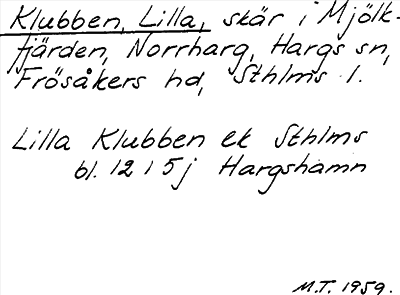 Klubben, Lilla, skär i Mjölk-
fjärden, Norrharg, Hargs sn,
Frösåkers hd, Sthlms l.
Lilla Klubben ek Sthlms
bl. 12 I 5j Hargshamn
M.T. 1959.